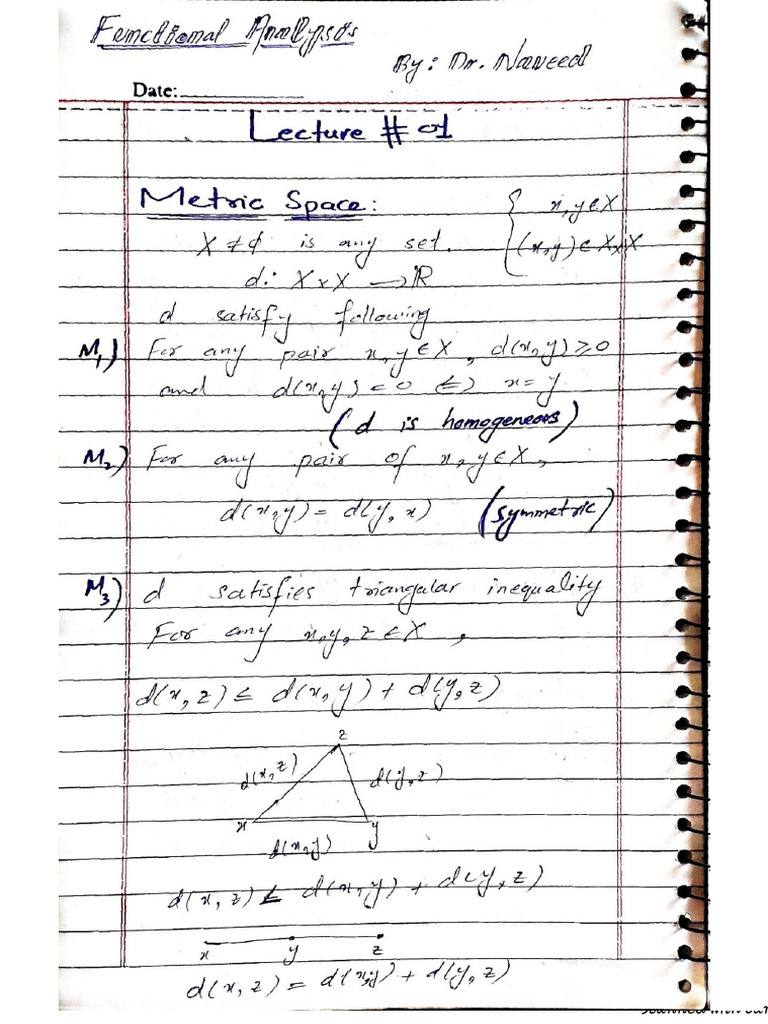 Functional Analysis
By: Dr. Naveed
Date:
Lecture # 01
Metric Space:
{ x, y ∈ X
X ≠ ϕ is any set. (x, y) ∈ X x X
d: X x X → ℝ
d satisfy following
M₁) For any pair x, y ∈ X, d(x, y) ≥ 0
and d(x, y) = 0 ⇔ x = y
(d is homogeneous)
M₂) For any pair of x, y ∈ X,
d(x, y) = d(y, x) (symmetric)
M₃) d satisfies triangular inequality
For any x, y, z ∈ X,
d(x, z) ≤ d(x, y) + d(y, z)
z
d(x, z) d(y, z)
x y
d(x, y)
d(x, z) < d(x, y) + d(y, z)
x y z
d(x, z) = d(x, y) + d(y, z)